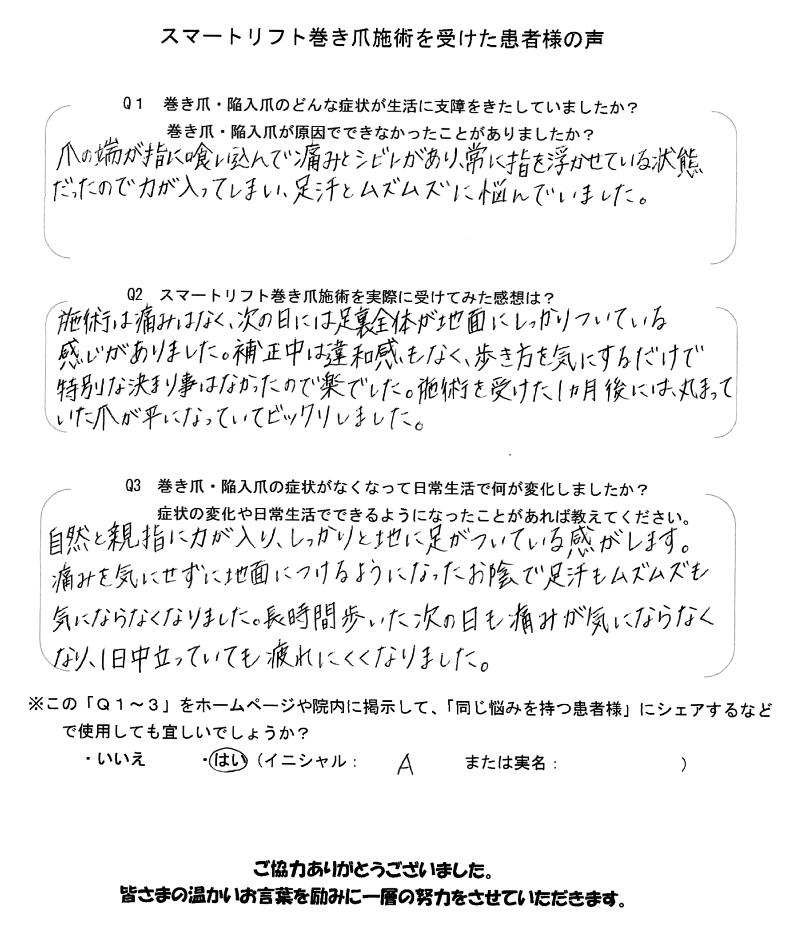 スマートリフト巻き爪施術を受けた患者様の声
Q1 巻き爪・陥入爪のどんな症状が生活に支障をきたしていましたか？
巻き爪・陥入爪が原因でできなかったことがありましたか？
爪の端が指に喰い込んで痛みとシビレがあり、常に指を浮かせている状態
だったので力が入ってしまい、足汗とムズムズに悩んでいました。
Q2 スマートリフト巻き爪施術を実際に受けてみた感想は？
施術は痛みはなく、次の日には足裏全体が地面にしっかりついている
感じがありました。補正中は違和感もなく、歩き方を気にするだけで
特別な決まり事はなかったので楽でした。施術を受けた1ヵ月後には、丸まって
いた爪が平になっていてビックリしました。
Q3 巻き爪・陥入爪の症状がなくなって日常生活で何が変化しましたか？
症状の変化や日常生活でできるようになったことがあれば教えてください。
自然と親指に力が入り、しっかりと地に足がついている感がします。
痛みを気にせずに地面につけるようになったお陰で足汗もムズムズも
気にならなくなりました。長時間歩いた次の日も痛みが気にならなく
なり、1日中立っていても疲れにくくなりました。
※この「Q1～3」をホームページや院内に掲示して、「同じ悩みを持つ患者様」にシェアするなど
で使用しても宜しいでしょうか？
・いいえ ・はい（イニシャル： A または実名： ）
ご協力ありがとうございました。
皆さまの温かいお言葉を励みに一層の努力をさせていただきます。